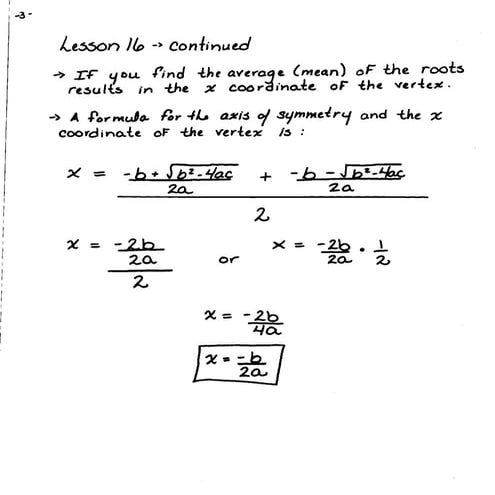 -3-
Lesson 16 → continued
→ If you find the average (mean) of the roots
results in the x coordinate of the vertex.
→ A formula for the axis of symmetry and the x
coordinate of the vertex is :
x = (-b + √(b²-4ac))/(2a) + (-b - √(b²-4ac))/(2a)
2
x = (-2b/2a)/2 or x = -2b/2a · 1/2
x = -2b/4a
x = -b/2a